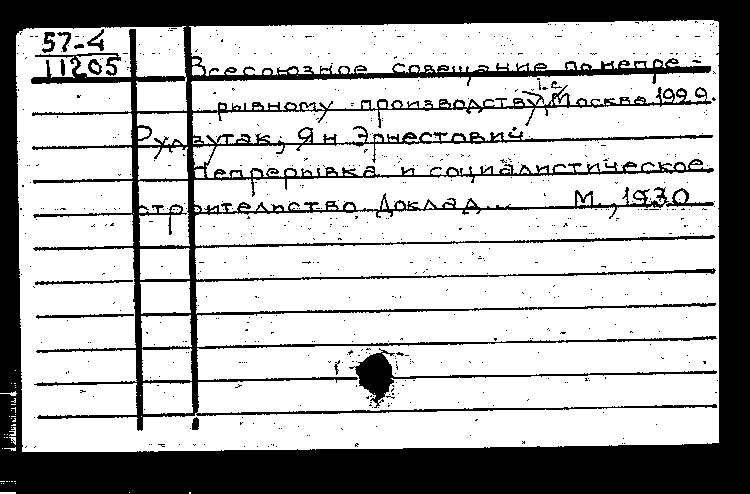 57-4
11205
Всесоюзное совещание по непре-
рывному производству, 1-е, Москва 1929.
Рудзутак, Ян Эрнестович
Непрерывка и социалистическое
строительство. Доклад... М., 1930